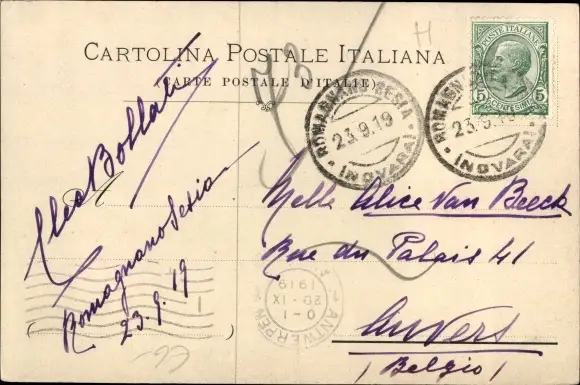 CARTOLINA POSTALE ITALIANA
(CARTE POSTALE D'ITALIE)
73
H
POSTE ITALIANE
5 CENTESIMI 5
ROMAGNANO SESIA
23.9.19
(NOVARA)
ROMAGNANO
23.9.19
(NOVARA)
Bollati
Romagnano Sesia
23.9.19
Melle Alice Van Beeck
Rue du Palais 41
Anvers
(Belgio)
ANTWERPEN
0-1
30 IX
1919